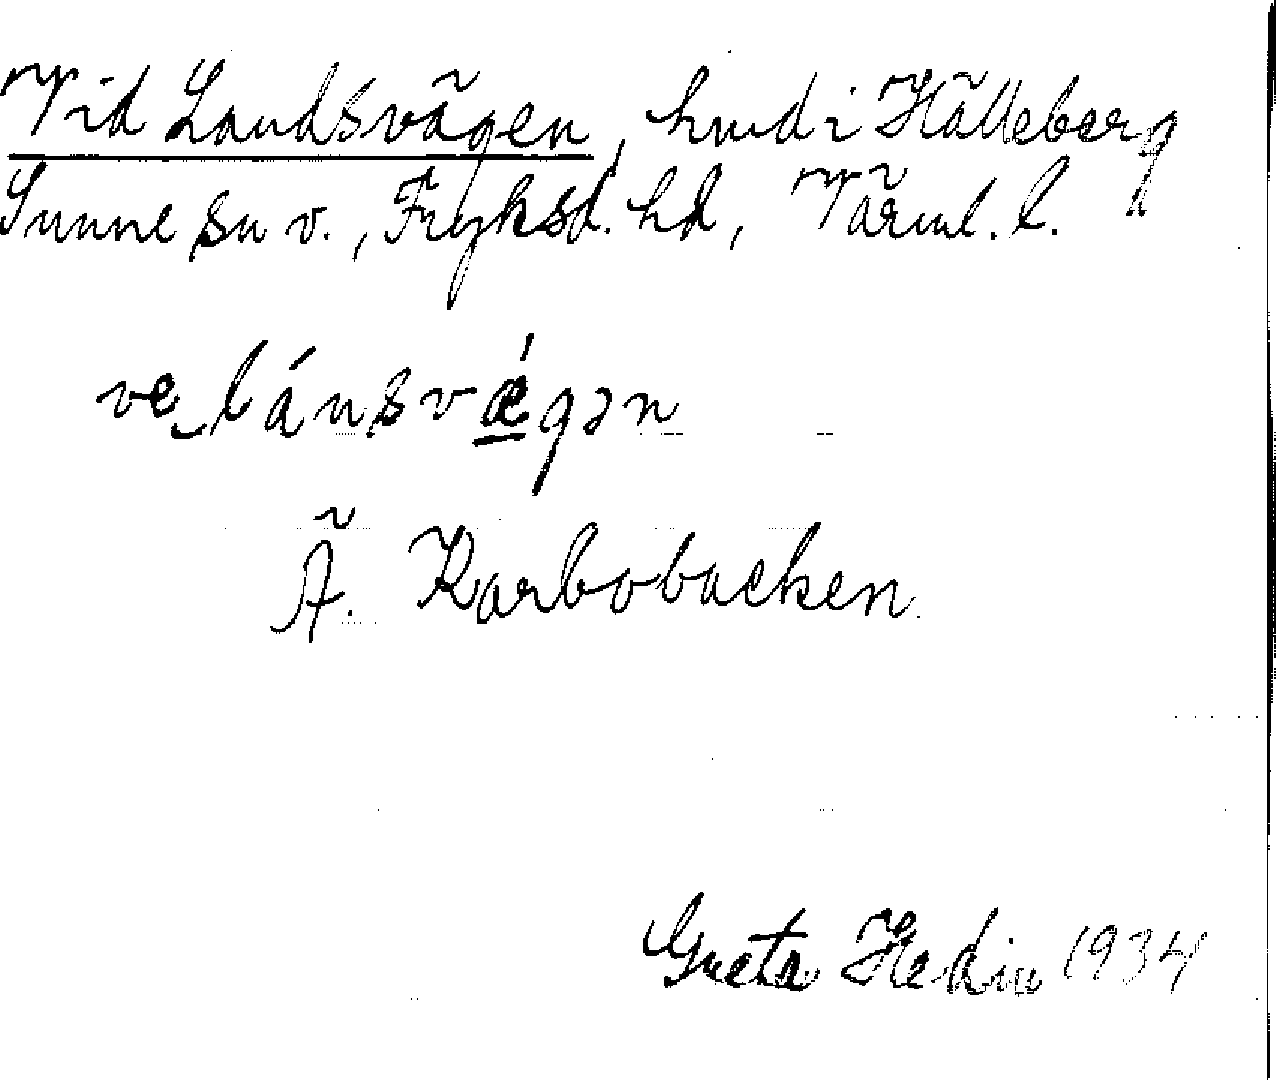 Vid Landsvägen, hmd i Hälleberg
Sunne sn v., Fryksd. hd, Värml. l.
ve lánsvǽgən
Ä. Karbobacken.
Greta Hedin 1934